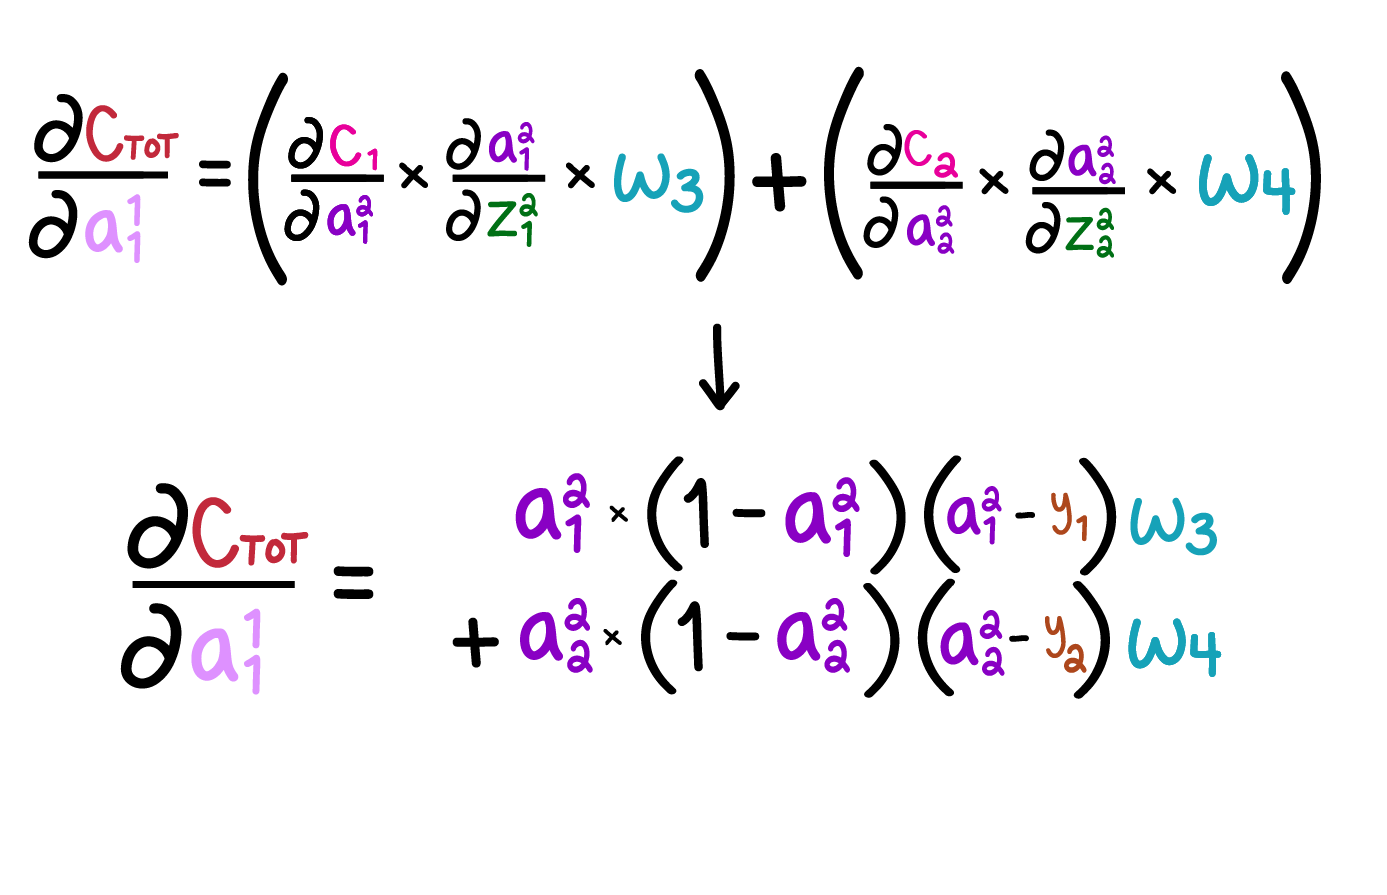 ∂C_TOT / ∂a₁¹ = (∂C₁/∂a₁² × ∂a₁²/∂z₁² × ω₃) + (∂C₂/∂a₂² × ∂a₂²/∂z₂² × ω₄)
↓
∂C_TOT / ∂a₁¹ = a₁² × (1 − a₁²)(a₁² − y₁) ω₃
+ a₂² × (1 − a₂²)(a₂² − y₂) ω₄